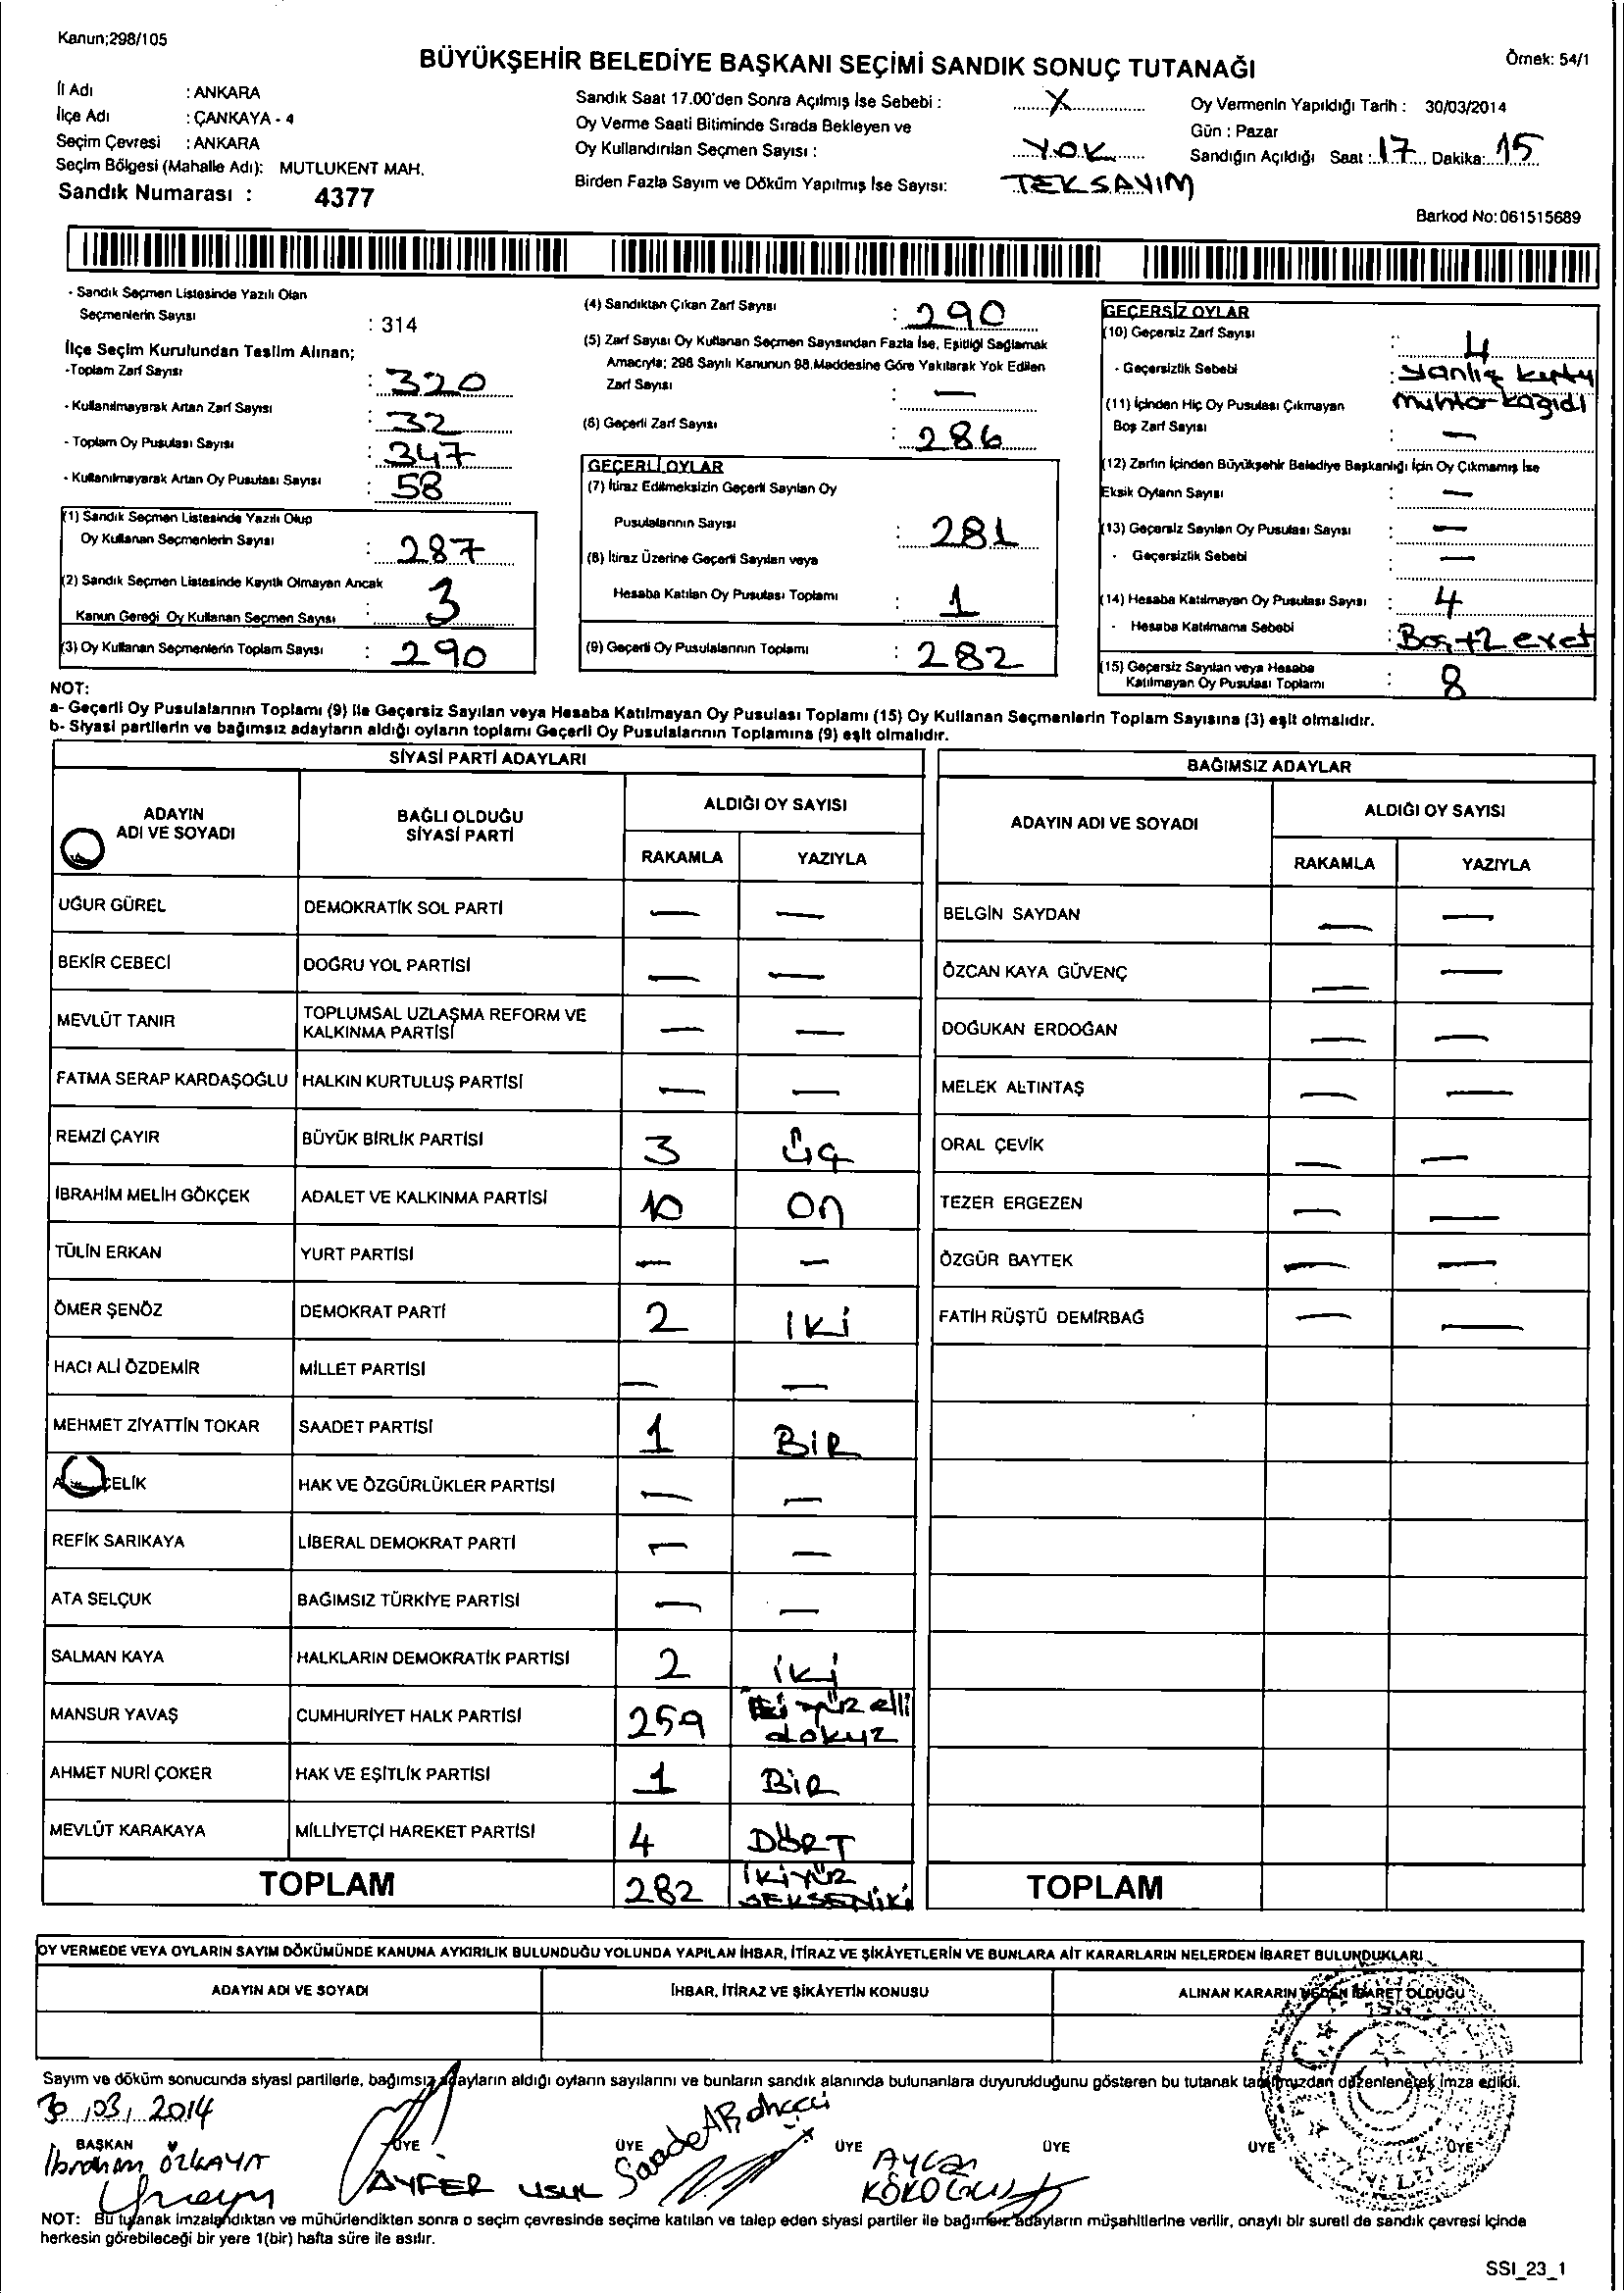 Kanun;298/105
BÜYÜKŞEHİR BELEDİYE BAŞKANI SEÇİMİ SANDIK SONUÇ TUTANAĞI
Örnek: 54/1
İl Adı : ANKARA
İlçe Adı : ÇANKAYA - 4
Seçim Çevresi : ANKARA
Seçim Bölgesi (Mahalle Adı): MUTLUKENT MAH.
Sandık Numarası : 4377
Sandık Saat 17.00'den Sonra Açılmış İse Sebebi : X
Oy Verme Saati Bitiminde Sırada Bekleyen ve
Oy Kullandırılan Seçmen Sayısı : YOK
Birden Fazla Sayım ve Döküm Yapılmış İse Sayısı: TEK SAYIM
Oy Vermenin Yapıldığı Tarih : 30/03/2014
Gün : Pazar
Sandığın Açıldığı Saat : 17 Dakika: 15
Barkod No: 061515689
- Sandık Seçmen Listesinde Yazılı Olan
Seçmenlerin Sayısı : 314
İlçe Seçim Kurulundan Teslim Alınan;
-Toplam Zarf Sayısı : 320
- Kullanılmayarak Artan Zarf Sayısı : 32
- Toplam Oy Pusulası Sayısı : 347
- Kullanılmayarak Artan Oy Pusulası Sayısı : 58
(1) Sandık Seçmen Listesinde Yazılı Olup
Oy Kullanan Seçmenlerin Sayısı : 287
(2) Sandık Seçmen Listesinde Kayıtlı Olmayan Ancak
Kanun Gereği Oy Kullanan Seçmen Sayısı : 3
(3) Oy Kullanan Seçmenlerin Toplam Sayısı : 290
(4) Sandıktan Çıkan Zarf Sayısı : 290
(5) Zarf Sayısı Oy Kullanan Seçmen Sayısından Fazla İse, Eşitliği Sağlamak
Amacıyla; 298 Sayılı Kanunun 98.Maddesine Göre Yakılarak Yok Edilen
Zarf Sayısı : —
(6) Geçerli Zarf Sayısı : 286
GEÇERLİ OYLAR
(7) İtiraz Edilmeksizin Geçerli Sayılan Oy
Pusulalarının Sayısı : 281
(8) İtiraz Üzerine Geçerli Sayılan veya
Hesaba Katılan Oy Pusulası Toplamı : 1
(9) Geçerli Oy Pusulalarının Toplamı : 282
GEÇERSİZ OYLAR
(10) Geçersiz Zarf Sayısı : 4
- Geçersizlik Sebebi : yanlış kutu
muhtar kağıdı
(11) İçinden Hiç Oy Pusulası Çıkmayan
Boş Zarf Sayısı : —
(12) Zarfın İçinden Büyükşehir Belediye Başkanlığı İçin Oy Çıkmamış İse
Eksik Oyların Sayısı : —
(13) Geçersiz Sayılan Oy Pusulası Sayısı : —
- Geçersizlik Sebebi : —
(14) Hesaba Katılmayan Oy Pusulası Sayısı : 4
- Hesaba Katılmama Sebebi : Boş+2 evet
(15) Geçersiz Sayılan veya Hesaba
Katılmayan Oy Pusulası Toplamı : 8
NOT:
a- Geçerli Oy Pusulalarının Toplamı (9) ile Geçersiz Sayılan veya Hesaba Katılmayan Oy Pusulası Toplamı (15) Oy Kullanan Seçmenlerin Toplam Sayısına (3) eşit olmalıdır.
b- Siyasi partilerin ve bağımsız adayların aldığı oyların toplamı Geçerli Oy Pusulalarının Toplamına (9) eşit olmalıdır.
SİYASİ PARTİ ADAYLARI
ADAYIN ADI VE SOYADI BAĞLI OLDUĞU SİYASİ PARTİ ALDIĞI OY SAYISI
RAKAMLA YAZIYLA
UĞUR GÜREL DEMOKRATİK SOL PARTİ — —
BEKİR CEBECİ DOĞRU YOL PARTİSİ — —
MEVLÜT TANIR TOPLUMSAL UZLAŞMA REFORM VE KALKINMA PARTİSİ — —
FATMA SERAP KARDAŞOĞLU HALKIN KURTULUŞ PARTİSİ — —
REMZİ ÇAYIR BÜYÜK BİRLİK PARTİSİ 3 üç
İBRAHİM MELİH GÖKÇEK ADALET VE KALKINMA PARTİSİ 10 on
TÜLİN ERKAN YURT PARTİSİ — —
ÖMER ŞENÖZ DEMOKRAT PARTİ 2 iki
HACI ALİ ÖZDEMİR MİLLET PARTİSİ — —
MEHMET ZİYATTİN TOKAR SAADET PARTİSİ 1 BİR
ÇELİK HAK VE ÖZGÜRLÜKLER PARTİSİ — —
REFİK SARIKAYA LİBERAL DEMOKRAT PARTİ — —
ATA SELÇUK BAĞIMSIZ TÜRKİYE PARTİSİ — —
SALMAN KAYA HALKLARIN DEMOKRATİK PARTİSİ 2 iki
MANSUR YAVAŞ CUMHURİYET HALK PARTİSİ 259 iki yüz elli dokuz
AHMET NURİ ÇOKER HAK VE EŞİTLİK PARTİSİ 1 BİR
MEVLÜT KARAKAYA MİLLİYETÇİ HAREKET PARTİSİ 4 DÖRT
TOPLAM 282 İKİYÜZ SEKSENİKİ
BAĞIMSIZ ADAYLAR
ADAYIN ADI VE SOYADI ALDIĞI OY SAYISI
RAKAMLA YAZIYLA
BELGİN SAYDAN — —
ÖZCAN KAYA GÜVENÇ — —
DOĞUKAN ERDOĞAN — —
MELEK ALTINTAŞ — —
ORAL ÇEVİK — —
TEZER ERGEZEN — —
ÖZGÜR BAYTEK — —
FATİH RÜŞTÜ DEMİRBAĞ — —
TOPLAM
OY VERMEDE VEYA OYLARIN SAYIM DÖKÜMÜNDE KANUNA AYKIRILIK BULUNDUĞU YOLUNDA YAPILAN İHBAR, İTİRAZ VE ŞİKÂYETLERİN VE BUNLARA AİT KARARLARIN NELERDEN İBARET BULUNDUKLARI
ADAYIN ADI VE SOYADI İHBAR, İTİRAZ VE ŞİKÂYETİN KONUSU ALINAN KARARIN NEDEN İBARET OLDUĞU
Sayım ve döküm sonucunda siyasi partilerle, bağımsız adayların aldığı oyların sayılarını ve bunların sandık alanında bulunanlara duyurulduğunu gösteren bu tutanak tarafımızdan düzenlenerek imza edildi.
30/03/2014
BAŞKAN ÜYE ÜYE ÜYE ÜYE ÜYE ÜYE
İbrahim ÖZKAYA
AYFER USUL
Saadet
Aycan
NOT: Bu tutanak imzalandıktan ve mühürlendikten sonra o seçim çevresinde seçime katılan ve talep eden siyasi partiler ile bağımsız adayların müşahitlerine verilir, onaylı bir sureti de sandık çevresi içinde
herkesin görebileceği bir yere 1(bir) hafta süre ile asılır.
SSI_23_1